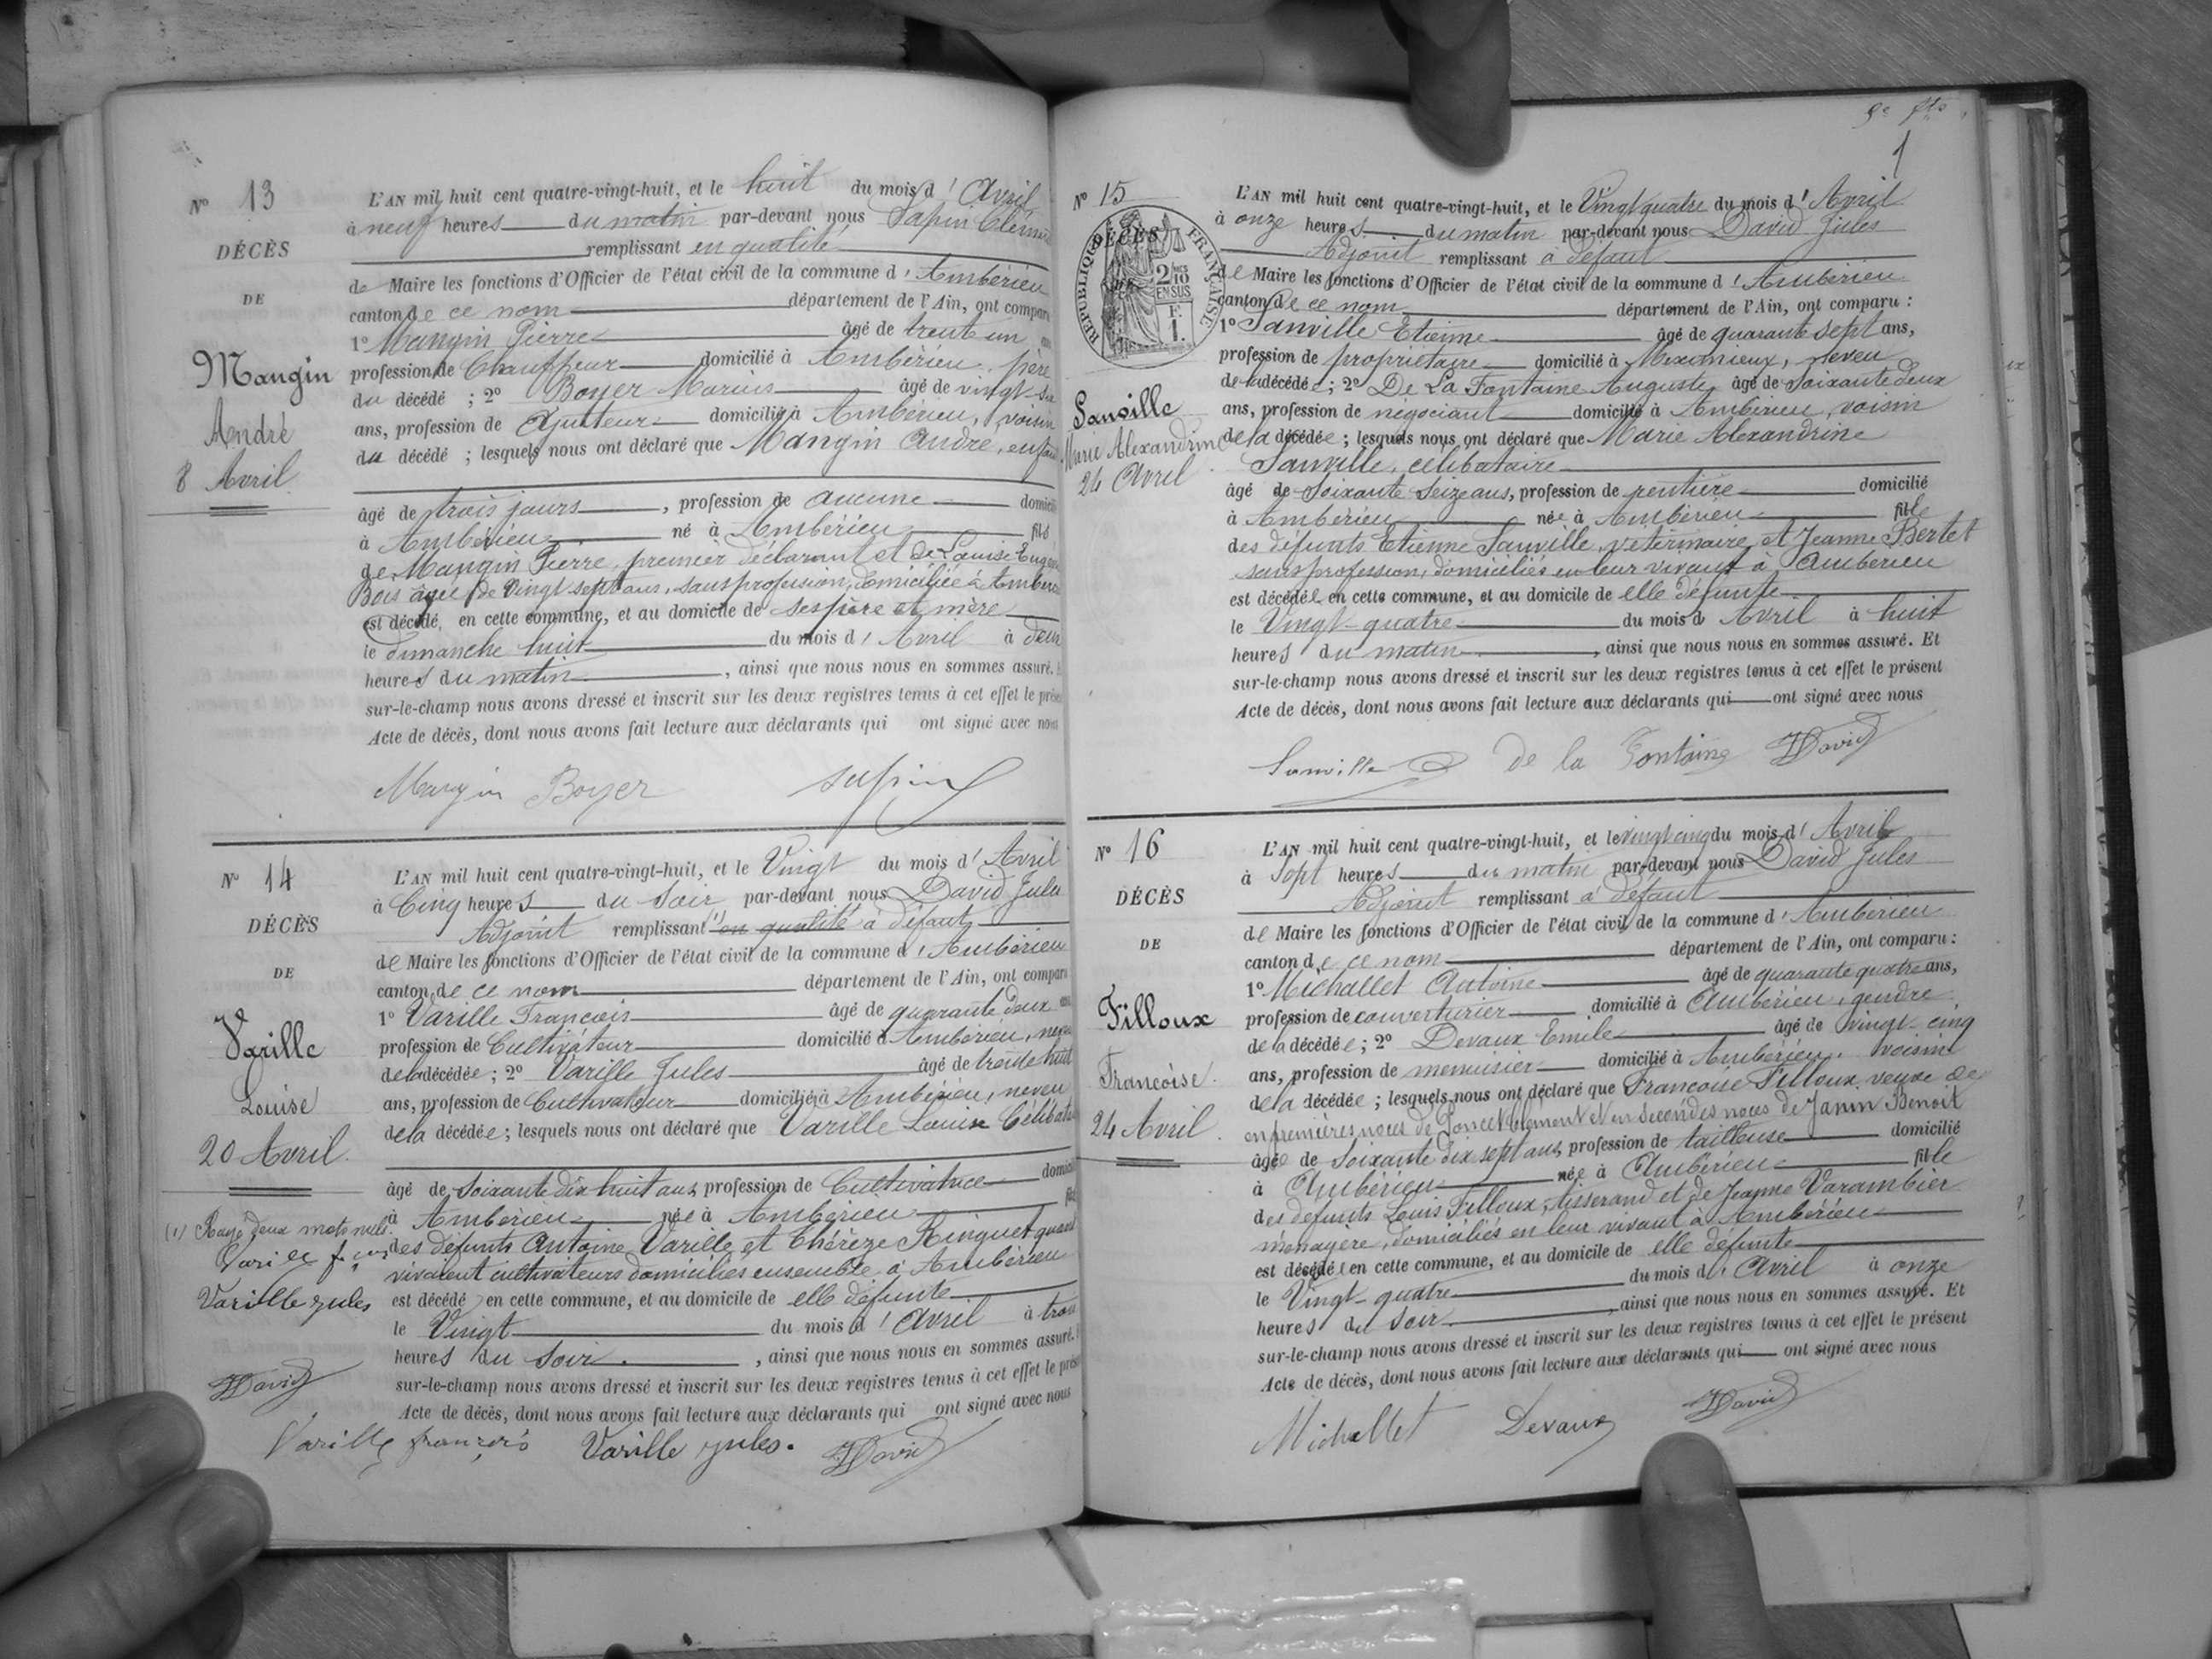 N° 13
DÉCÈS
DE
Mangin
André
8 Avril
L'AN mil huit cent quatre-vingt-huit, et le huit du mois d'Avril
à neuf heures du matin par-devant nous Sapin Clément
remplissant en qualité
de Maire les fonctions d'Officier de l'état civil de la commune d'Ambérieu
canton de ce nom département de l'Ain, ont comparu
1° Mangin Pierre âgé de trente un
profession de Chauffeur domicilié à Ambérieu, père
du décédé ; 2° Boyer Marius âgé de vingt-six
ans, profession de Ajusteur domicilié à Ambérieu, voisin
du décédé ; lesquels nous ont déclaré que Mangin André, enfant
âgé de trois jours, profession de aucune domicilié
à Ambérieu né à Ambérieu fils
de Mangin Pierre, premier déclarant et de Louise Eugénie
Bois âgée de vingt sept ans, sans profession, domiciliée à Ambérieu
est décédé, en cette commune, et au domicile de ses père et mère
le dimanche huit du mois d'Avril à deux
heures du matin, ainsi que nous nous en sommes assuré.
sur-le-champ nous avons dressé et inscrit sur les deux registres tenus à cet effet le présent
Acte de décès, dont nous avons fait lecture aux déclarants qui ont signé avec nous
Mangin Boyer Sapin
N° 14
DÉCÈS
DE
Varille
Louise
20 Avril
(1) Rayé deux mots nuls
Varille
Varille jules
JDavid
L'AN mil huit cent quatre-vingt-huit, et le Vingt du mois d'Avril
à Cinq heures du Soir par-devant nous David Jules
Adjoint remplissant (1) en qualité à défaut
de Maire les fonctions d'Officier de l'état civil de la commune d'Ambérieu
canton de ce nom département de l'Ain, ont comparu
1° Varille Francois âgé de quarante deux ans
profession de Cultivateur domicilié à Ambérieu, neveu
de la décédée ; 2° Varille Jules âgé de trente huit
ans, profession de Cultivateur domicilié à Ambérieu, neveu
de la décédée ; lesquels nous ont déclaré que Varille Louise Célibataire
âgé de soixante dix huit ans profession de Cultivatrice domicilié
à Ambérieu née à Ambérieu fille
des défunts Antoine Varille et Thérèze Ringuet quand
vivaient cultivateurs domiciliés ensemble à Ambérieu
est décédé en cette commune, et au domicile de elle défunte
le Vingt du mois d'Avril à trois
heures du Soir, ainsi que nous nous en sommes assuré.
sur-le-champ nous avons dressé et inscrit sur les deux registres tenus à cet effet le présent
Acte de décès, dont nous avons fait lecture aux déclarants qui ont signé avec nous
Varille françois Varille jules. JDavid
1
N° 15
DÉCÈS
RÉPUBLIQUE FRANÇAISE
2/10 EN SUS
F. 1.
Sanville
Marie Alexandrine
24 Avril
L'AN mil huit cent quatre-vingt-huit, et le Vingt quatre du mois d'Avril
à onze heures du matin par-devant nous David Jules
Adjoint remplissant à défaut
de Maire les fonctions d'Officier de l'état civil de la commune d'Ambérieu
canton de ce nom département de l'Ain, ont comparu :
1° Sanville Etienne âgé de quarante sept ans,
profession de propriétaire domicilié à Meximieux, neveu
de la décédée ; 2° De La Fontaine Auguste âgé de Soixante deux
ans, profession de négociant domicilié à Ambérieu, voisin
de la décédée ; lesquels nous ont déclaré que Marie Alexandrine
Sanville, célibataire
âgé de Soixante Seize ans, profession de rentière domicilié
à Ambérieu née à Ambérieu fille
des défunts Etienne Sanville, vétérinaire et Jeanne Bertet
sans profession, domiciliés en leur vivant à Ambérieu
est décédée en cette commune, et au domicile de elle défunte
le Vingt-quatre du mois d Avril à huit
heures du matin, ainsi que nous nous en sommes assuré. Et
sur-le-champ nous avons dressé et inscrit sur les deux registres tenus à cet effet le présent
Acte de décès, dont nous avons fait lecture aux déclarants qui ont signé avec nous
Sanville De la Fontaine JDavid
N° 16
DÉCÈS
DE
Filloux
Francoise
24 Avril
L'AN mil huit cent quatre-vingt-huit, et le vingt cinq du mois d'Avril
à Sept heures du matin par-devant nous David Jules
Adjoint remplissant à défaut
de Maire les fonctions d'Officier de l'état civil de la commune d'Ambérieu
canton de ce nom département de l'Ain, ont comparu :
1° Michallet Antoine âgé de quarante quatre ans,
profession de couverturier domicilié à Ambérieu, gendre
de la décédée ; 2° Devaux Emile âgé de vingt-cinq
ans, profession de menuisier domicilié à Ambérieu, voisin
de la décédée ; lesquels nous ont déclaré que Francoise Filloux veuve de
en premières noces de Poncet Clément et en secondes noces de Janin Benoit
âgée de Soixante dix sept ans profession de tailleuse domicilié
à Ambérieu née à Ambérieu fille
des défunts Louis Filloux, tisserand et de Jeanne Varambier
ménagère, domiciliés en leur vivant à Ambérieu
est décédée en cette commune, et au domicile de elle défunte
le Vingt-quatre du mois d'Avril à onze
heures du Soir, ainsi que nous nous en sommes assuré. Et
sur-le-champ nous avons dressé et inscrit sur les deux registres tenus à cet effet le présent
Acte de décès, dont nous avons fait lecture aux déclarants qui ont signé avec nous
Michallet Devaux JDavid